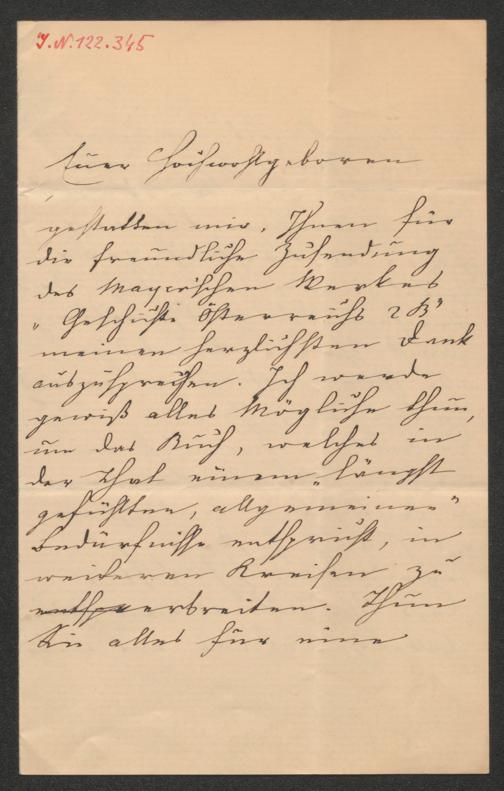 J.N. 122.345
Euer Hochwohlgeboren
gestatten mir, Ihnen für
die freundliche Zusendung
des Mayer'schen Werkes
"Geschichte Österreichs 2 B"
meinen herzlichsten Dank
auszusprechen. Ich werde
gewiß alles Mögliche thun,
um das Buch, welches in
der That einem "längst
gefühlten, allgemeinen"
Bedürfnisse entspricht, in
weiteren Kreisen zu
verbreiten. Thun
Sie alles für eine